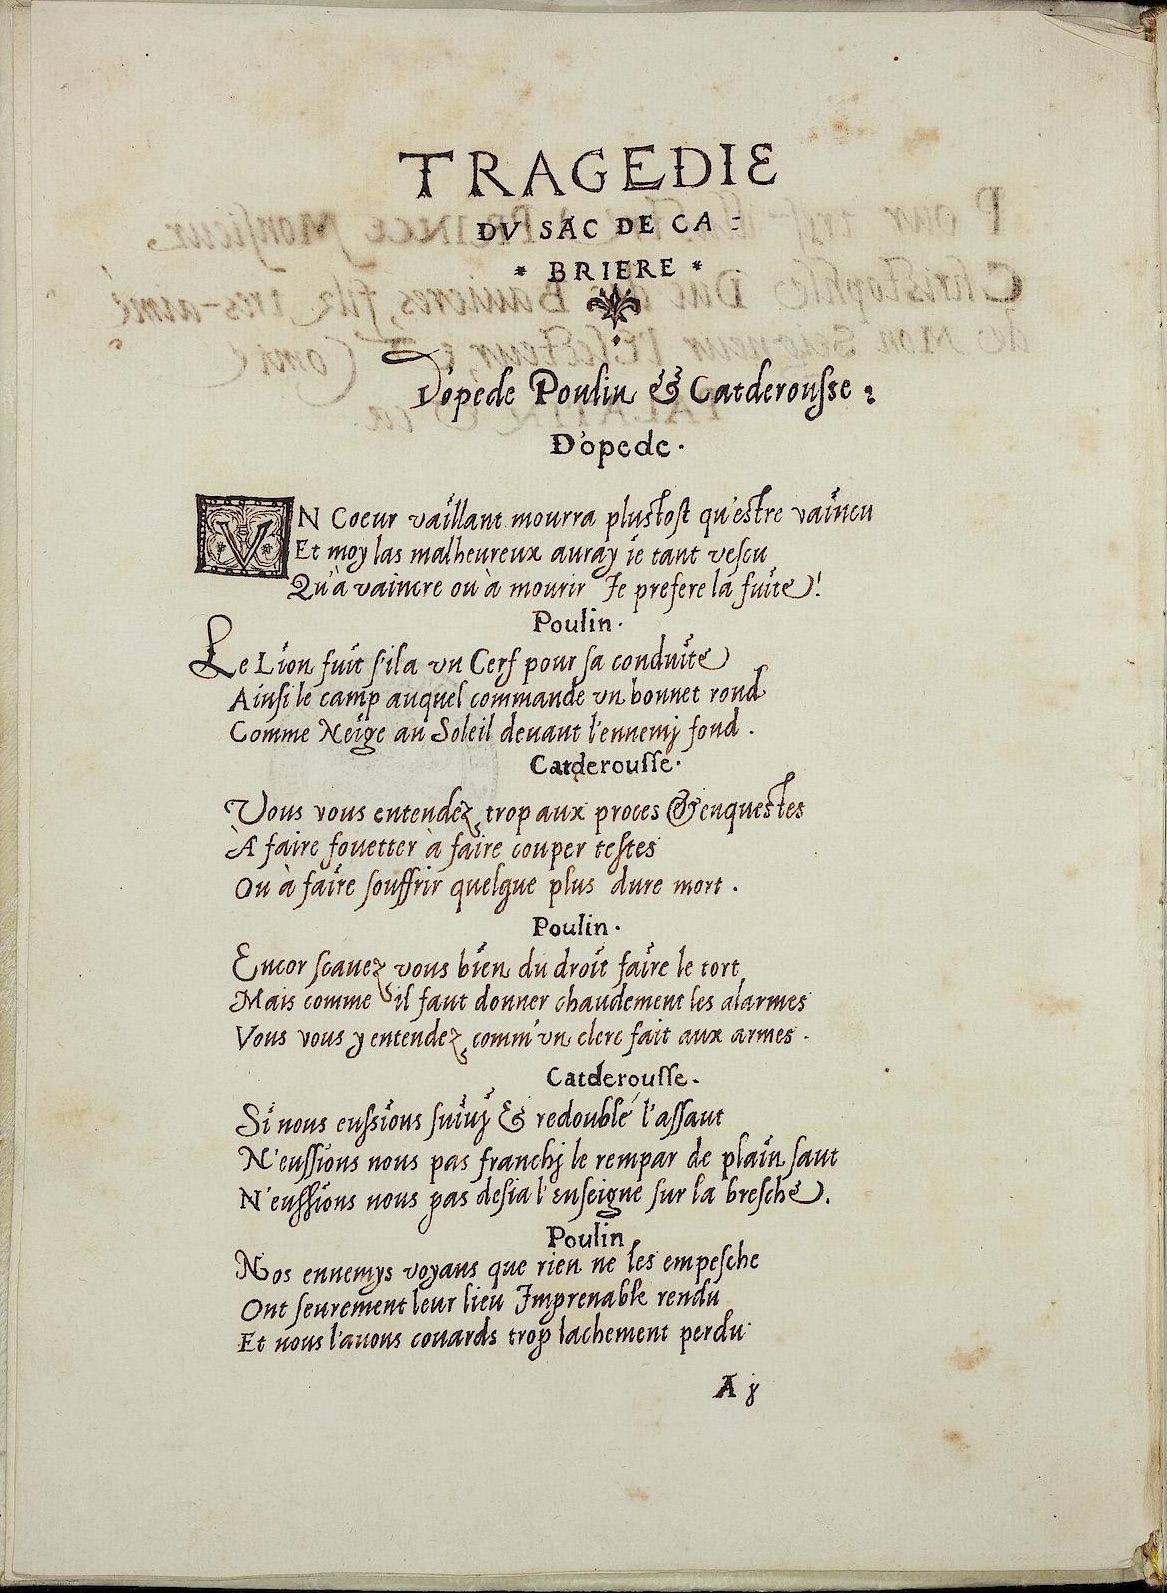 TRAGEDIE
DV SAC DE CA-
* BRIERE *
D'opede Poulin & Catderousse :
D'opede.
VN Coeur vaillant mourra plustost qu'estre vaincu
Et moy las malheureux auray ie tant vescu
Qu'à vaincre ou à mourir Je prefere la fuite!
Poulin.
Le Lion fuit s'il a vn Cerf pour sa conduite
Ainsi le camp auquel commande vn bonnet rond
Comme Neige au Soleil deuant l'ennemj fond.
Catderousse.
Vous vous entendez trop aux proces & enquestes
À faire fouetter à faire couper testes
Ou à faire souffrir quelque plus dure mort.
Poulin.
Encor scauez vous bien du droit faire le tort
Mais comme il faut donner chaudement les alarmes
Vous vous y entendez comm'vn clerc fait aux armes.
Catderousse.
Si nous eussions suiuj & redoublé l'assaut
N'eussions nous pas franchj le rempar de plain saut
N'eussions nous pas desia l'enseigne sur la bresche.
Poulin
Nos ennemys voyans que rien ne les empesche
Ont seurement leur lieu Jmprenable rendu
Et nous l'auons couards trop lachement perdu
A j